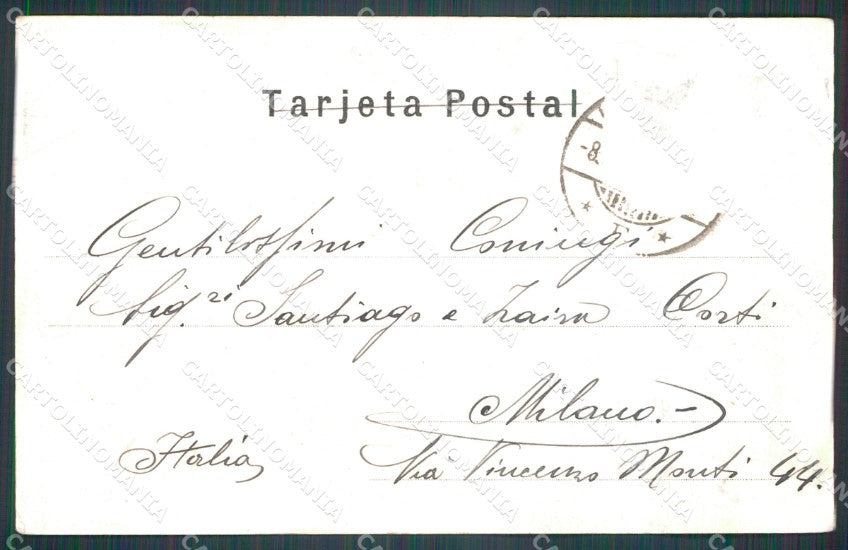 Tarjeta Postal
-8.
Gentilissimi Coniugi
Sig.ri Santiago e Zaira Corti
Milano.-
Italia
Via Vincenzo Monti 44.
CARTOLINOMANIA